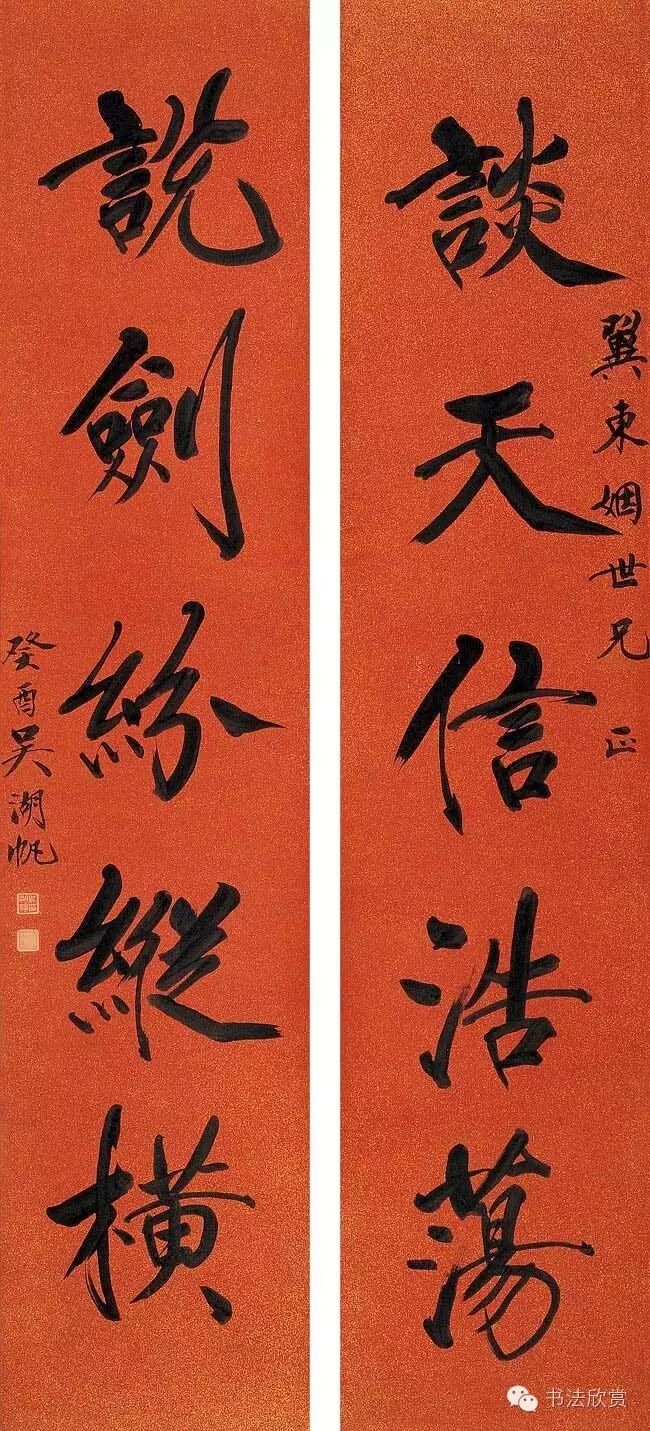 談天信浩蕩
翼東姻世兄 正
說劍紛縱橫
癸酉吴湖帆
书法欣赏